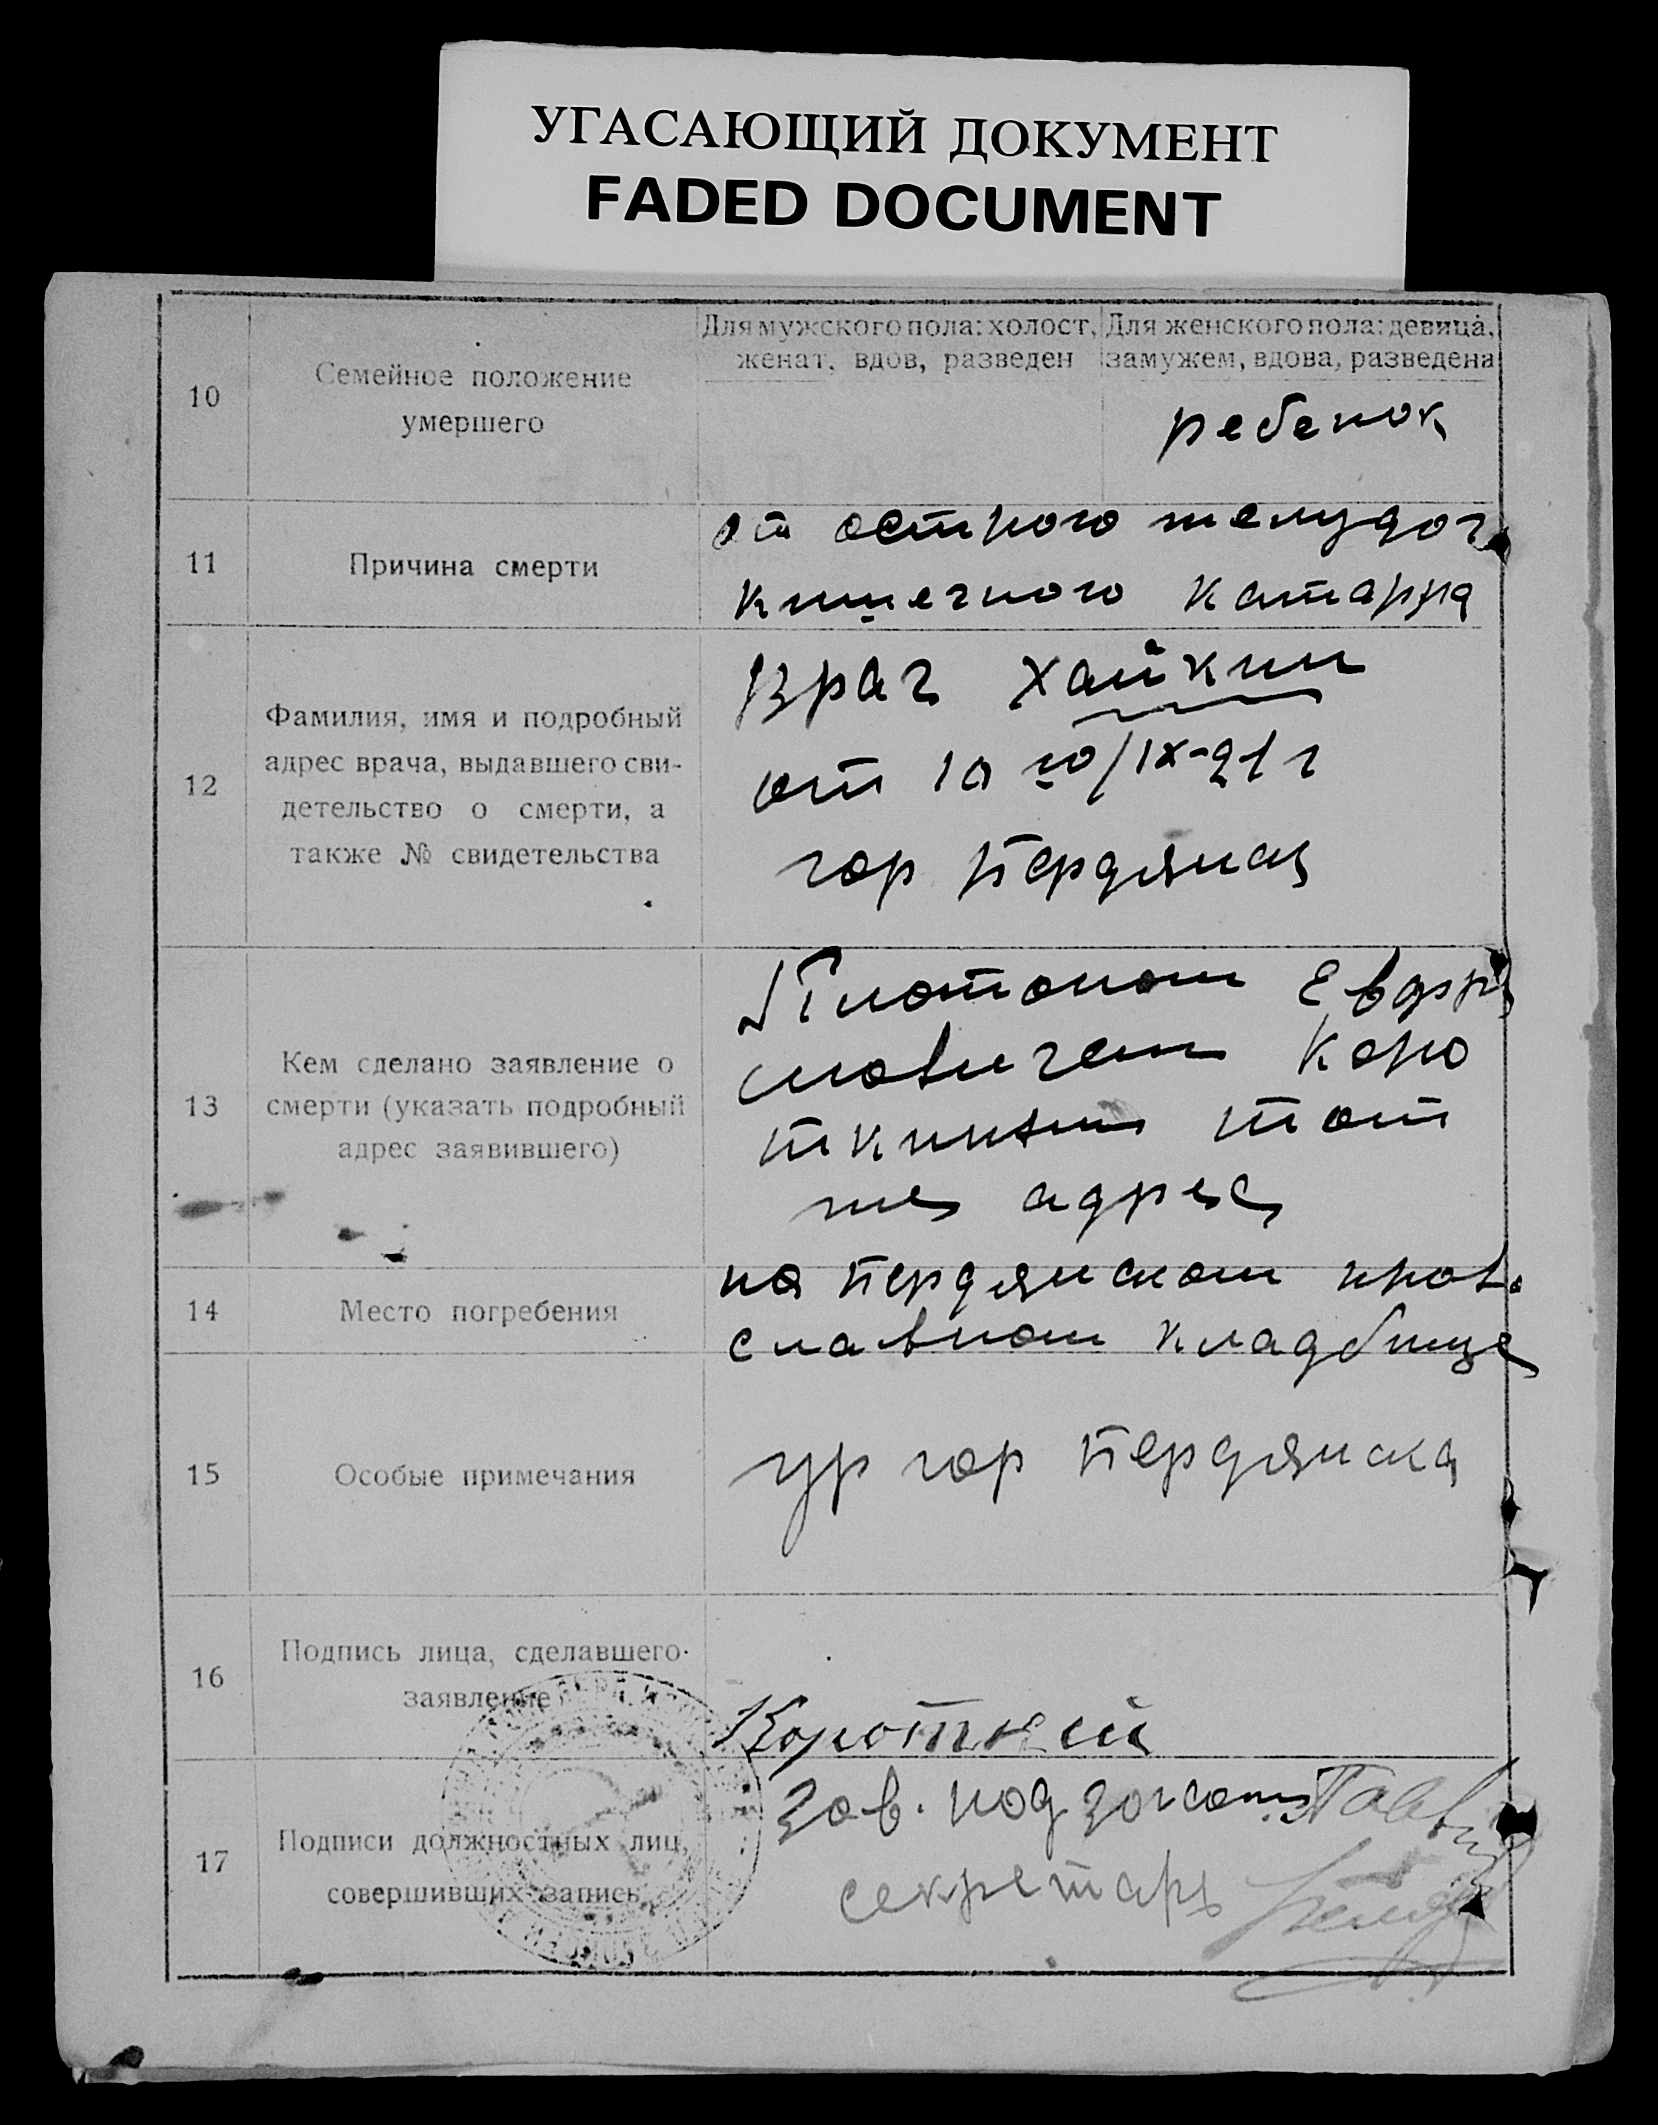 УГАСАЮЩИЙ ДОКУМЕНТ
FADED DOCUMENT
Для мужского пола: холост,
женат, вдов, разведен
Для женского пола: девица,
замужем, вдова, разведена
10
Семейное положение
умершего
ребенок
11
Причина смерти
от острого желудоч.
кишечного катарра
12
Фамилия, имя и подробный
адрес врача, выдавшего сви-
детельство о смерти, а
также № свидетельства
Врач Хайкин
от 10го/IX-21 г
гор Бердянск
13
Кем сделано заявление о
смерти (указать подробный
адрес заявившего)
Платоном
Коро
ткием тот
же адрес
14
Место погребения
на Бердянском прав.
славном кладбище
15
Особые примечания
ур гор Бердянска
16
Подпись лица, сделавшего
заявление
Короткий
17
Подписи должностных лиц,
совершивших запись
Зав. подзагсом
секретарь